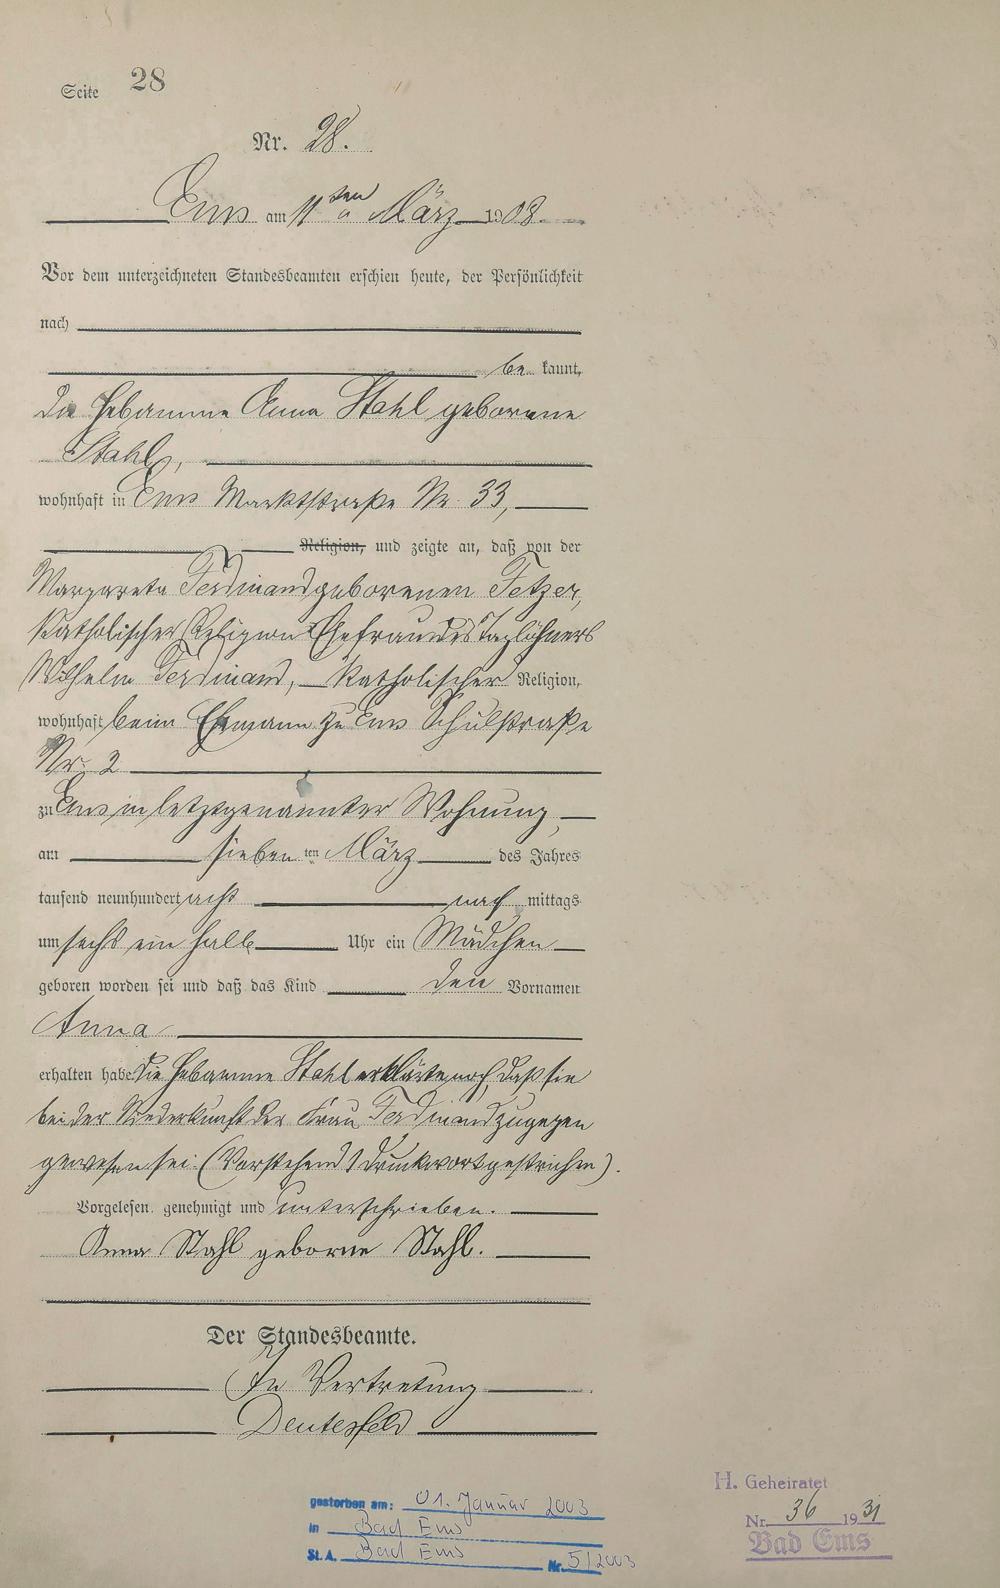 Seite 28
Nr. 28.
Ems am 11ten März 1908.
Vor dem unterzeichneten Standesbeamten erschien heute, der Persönlichkeit
nach
be kannt,
die Hebamme Anna Stahl geborene
Stahl,
wohnhaft in Ems Marktstraße Nr. 33,
Religion, und zeigte an, daß von der
Margareta Ferdinand geborenen Fetzer,
katholischer Religion Ehefrau des Taglöhners
Wilhelm Ferdinand, katholischer Religion,
wohnhaft beim Ehemann zu Ems Schulstraße
Nr. 2
zu Ems in letztgenannter Wohnung
am sieben ten März des Jahres
tausend neunhundert acht nach mittags
um sechs ein halb Uhr ein Mädchen
geboren worden sei und daß das Kind den Vornamen
Anna
erhalten habe. Die Hebamme Stahl erklärte noch, daß sie
bei der Niederkunft der Frau Ferdinand zugegen
gewesen sei. (Vorstehend 1 Druckwort gestrichen).
Vorgelesen, genehmigt und unterschrieben.
Anna Stahl geborne Stahl.
Der Standesbeamte.
In Vertretung
Deutesfeld
gestorben am: 01. Januar 2003
in Bad Ems
St.A. Bad Ems Nr. 5/2003
H. Geheiratet
Nr. 36 1931
Bad Ems